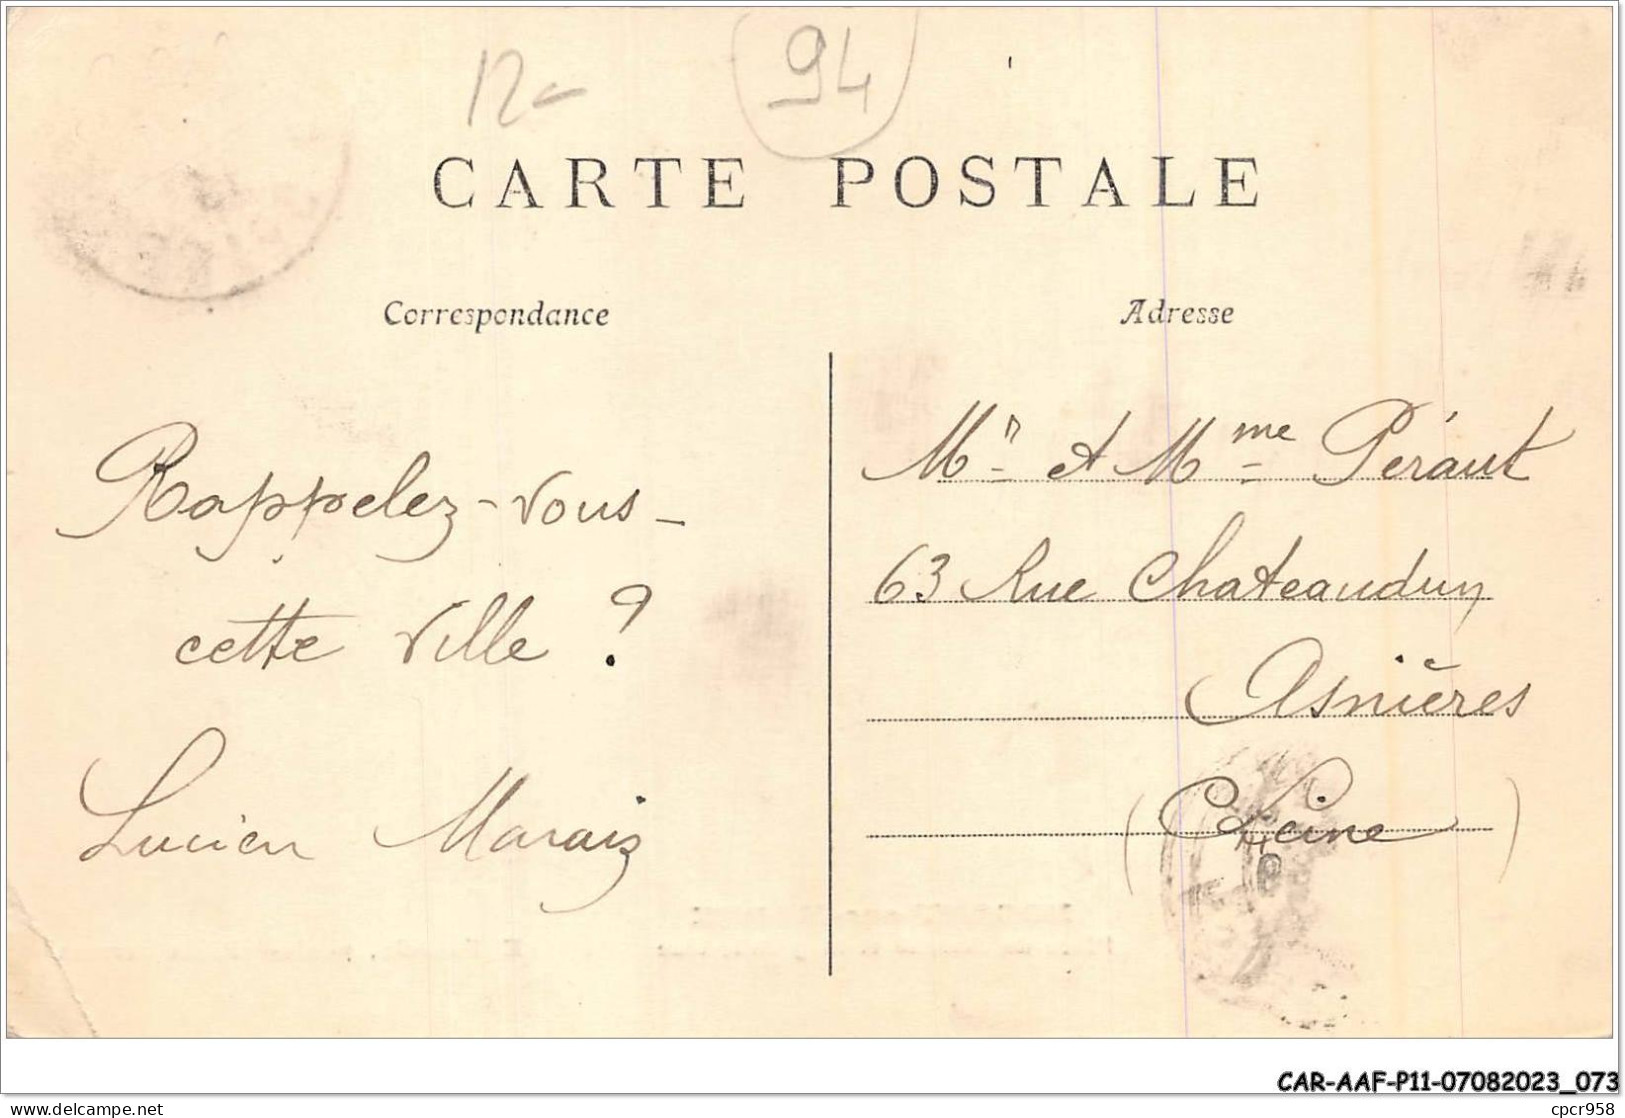 12-
94
CARTE POSTALE
Correspondance
Adresse
Rappelez-vous-
cette ville ?
Lucien Marais
Mr et Mme Péraut
63 Rue Chateaudun
Asnières
(Seine)
CAR-AAF-P11-07082023_073
delcampe.net
cpcr958